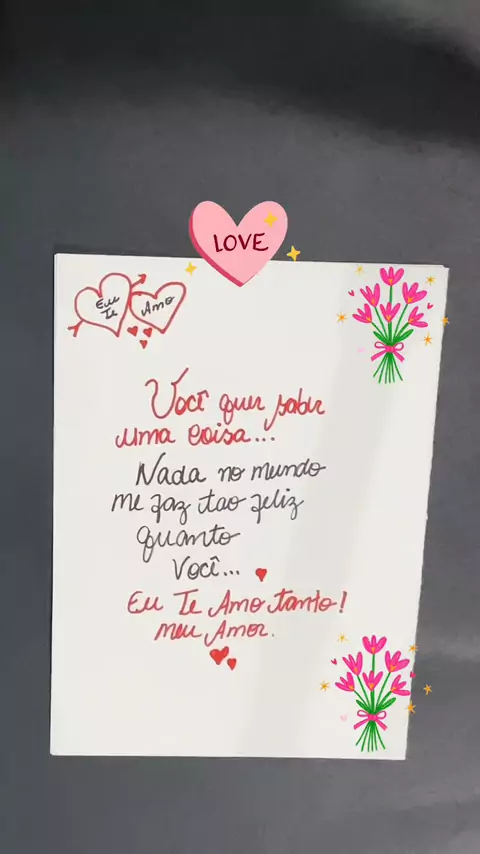 LOVE
Eu
Te
Amo
Você quer saber
uma coisa...
Nada no mundo
me faz tao feliz
quanto
Você...
Eu Te Amo tanto!
meu Amor.